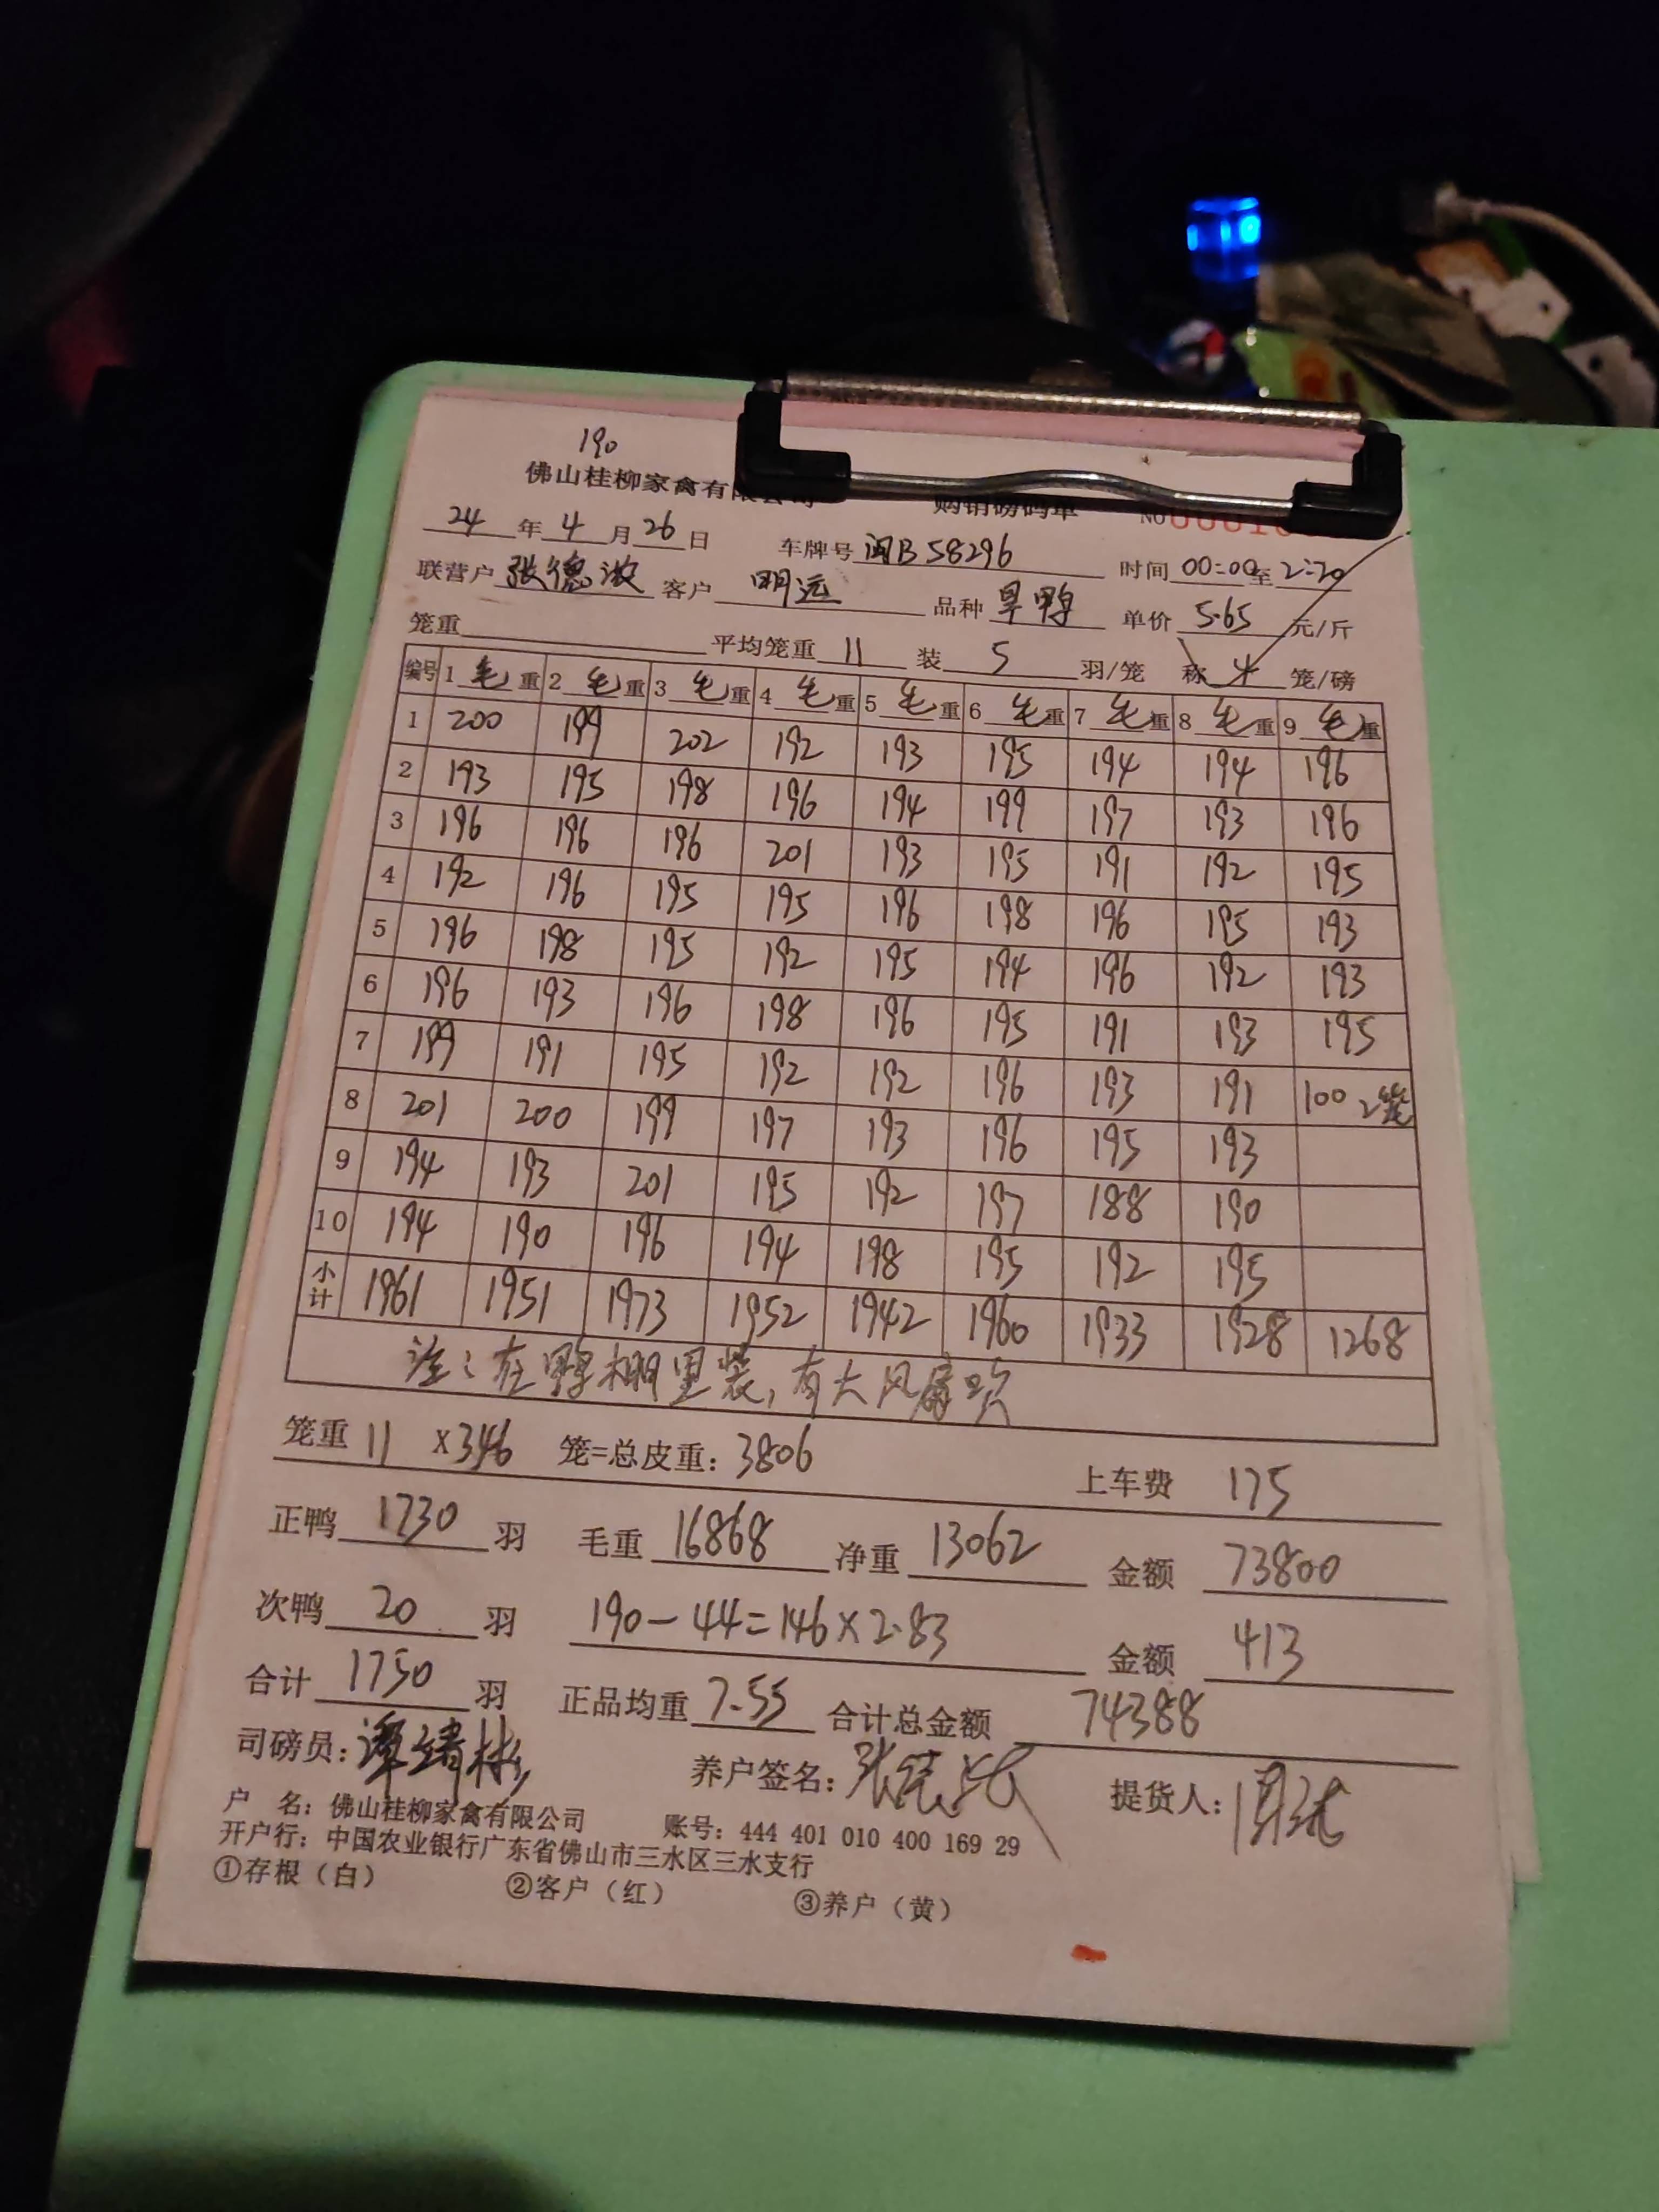 190
佛山桂柳家禽有限公司 购销磅码单 No
24年4月26日 车牌号 闽B58296 时间 00:00至2:20
联营户 张德波 客户 明远 品种 旱鸭 单价 5.65 元/斤
笼重 平均笼重 11 装 5 羽/笼 称 4 笼/磅
编号 1 毛重 2 毛重 3 毛重 4 毛重 5 毛重 6 毛重 7 毛重 8 毛重 9 毛重
1 200 199 202 192 193 195 194 194 196
2 193 195 198 196 194 199 197 193 196
3 196 196 196 201 193 195 191 192 195
4 192 196 195 195 196 198 196 195 193
5 196 198 195 192 195 194 196 192 193
6 196 193 196 198 196 195 191 193 195
7 199 191 195 192 192 196 193 191 100 2笼
8 201 200 199 197 193 196 195 193
9 194 193 201 195 192 197 188 190
10 194 190 196 194 198 195 192 195
小计 1961 1951 1973 1952 1942 1960 1933 1928 1268
注:在鸭棚里装,有大风扇吹
笼重 11 X346 笼=总皮重:3806 上车费 175
正鸭 1730 羽 毛重 16868 净重 13062 金额 73800
次鸭 20 羽 190-44=146×2.83 金额 413
合计 1750 羽 正品均重 7.55 合计总金额 74388
司磅员:谭绪彬 养户签名: 提货人:
户 名:佛山桂柳家禽有限公司 账号:444 401 010 400 169 29
开户行:中国农业银行广东省佛山市三水区三水支行
①存根(白) ②客户(红) ③养户(黄)